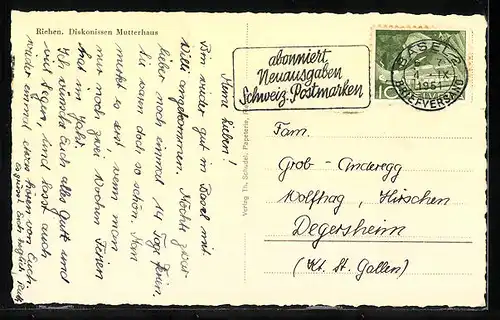 Riehen. Diakonissen Mutterhaus
Meine Lieben!
Bin wieder gut in Basel mit
Willi angekommen. Möchte zwar
lieber noch einmal 14 Tage
Sie waren doch so schön. Man
merkt es erst wenn man
nur noch zwei Wochen Ferien
hat im Jahr.
Ich wünsche Euch alles Gute und
viel Segen, und lasst auch
wieder einmal etwas hören von Euch.
Es grüsst Euch herzlich
Verlag Th. Schudel, Papeterie,
abonniert
Neuausgaben
Schweiz. Postmarken
BASEL 2
1951
BRIEFVERSAND
10
Fam.
Grob-Anderegg
Wolfhag, Hirschen
Degersheim
(Kt. St. Gallen)